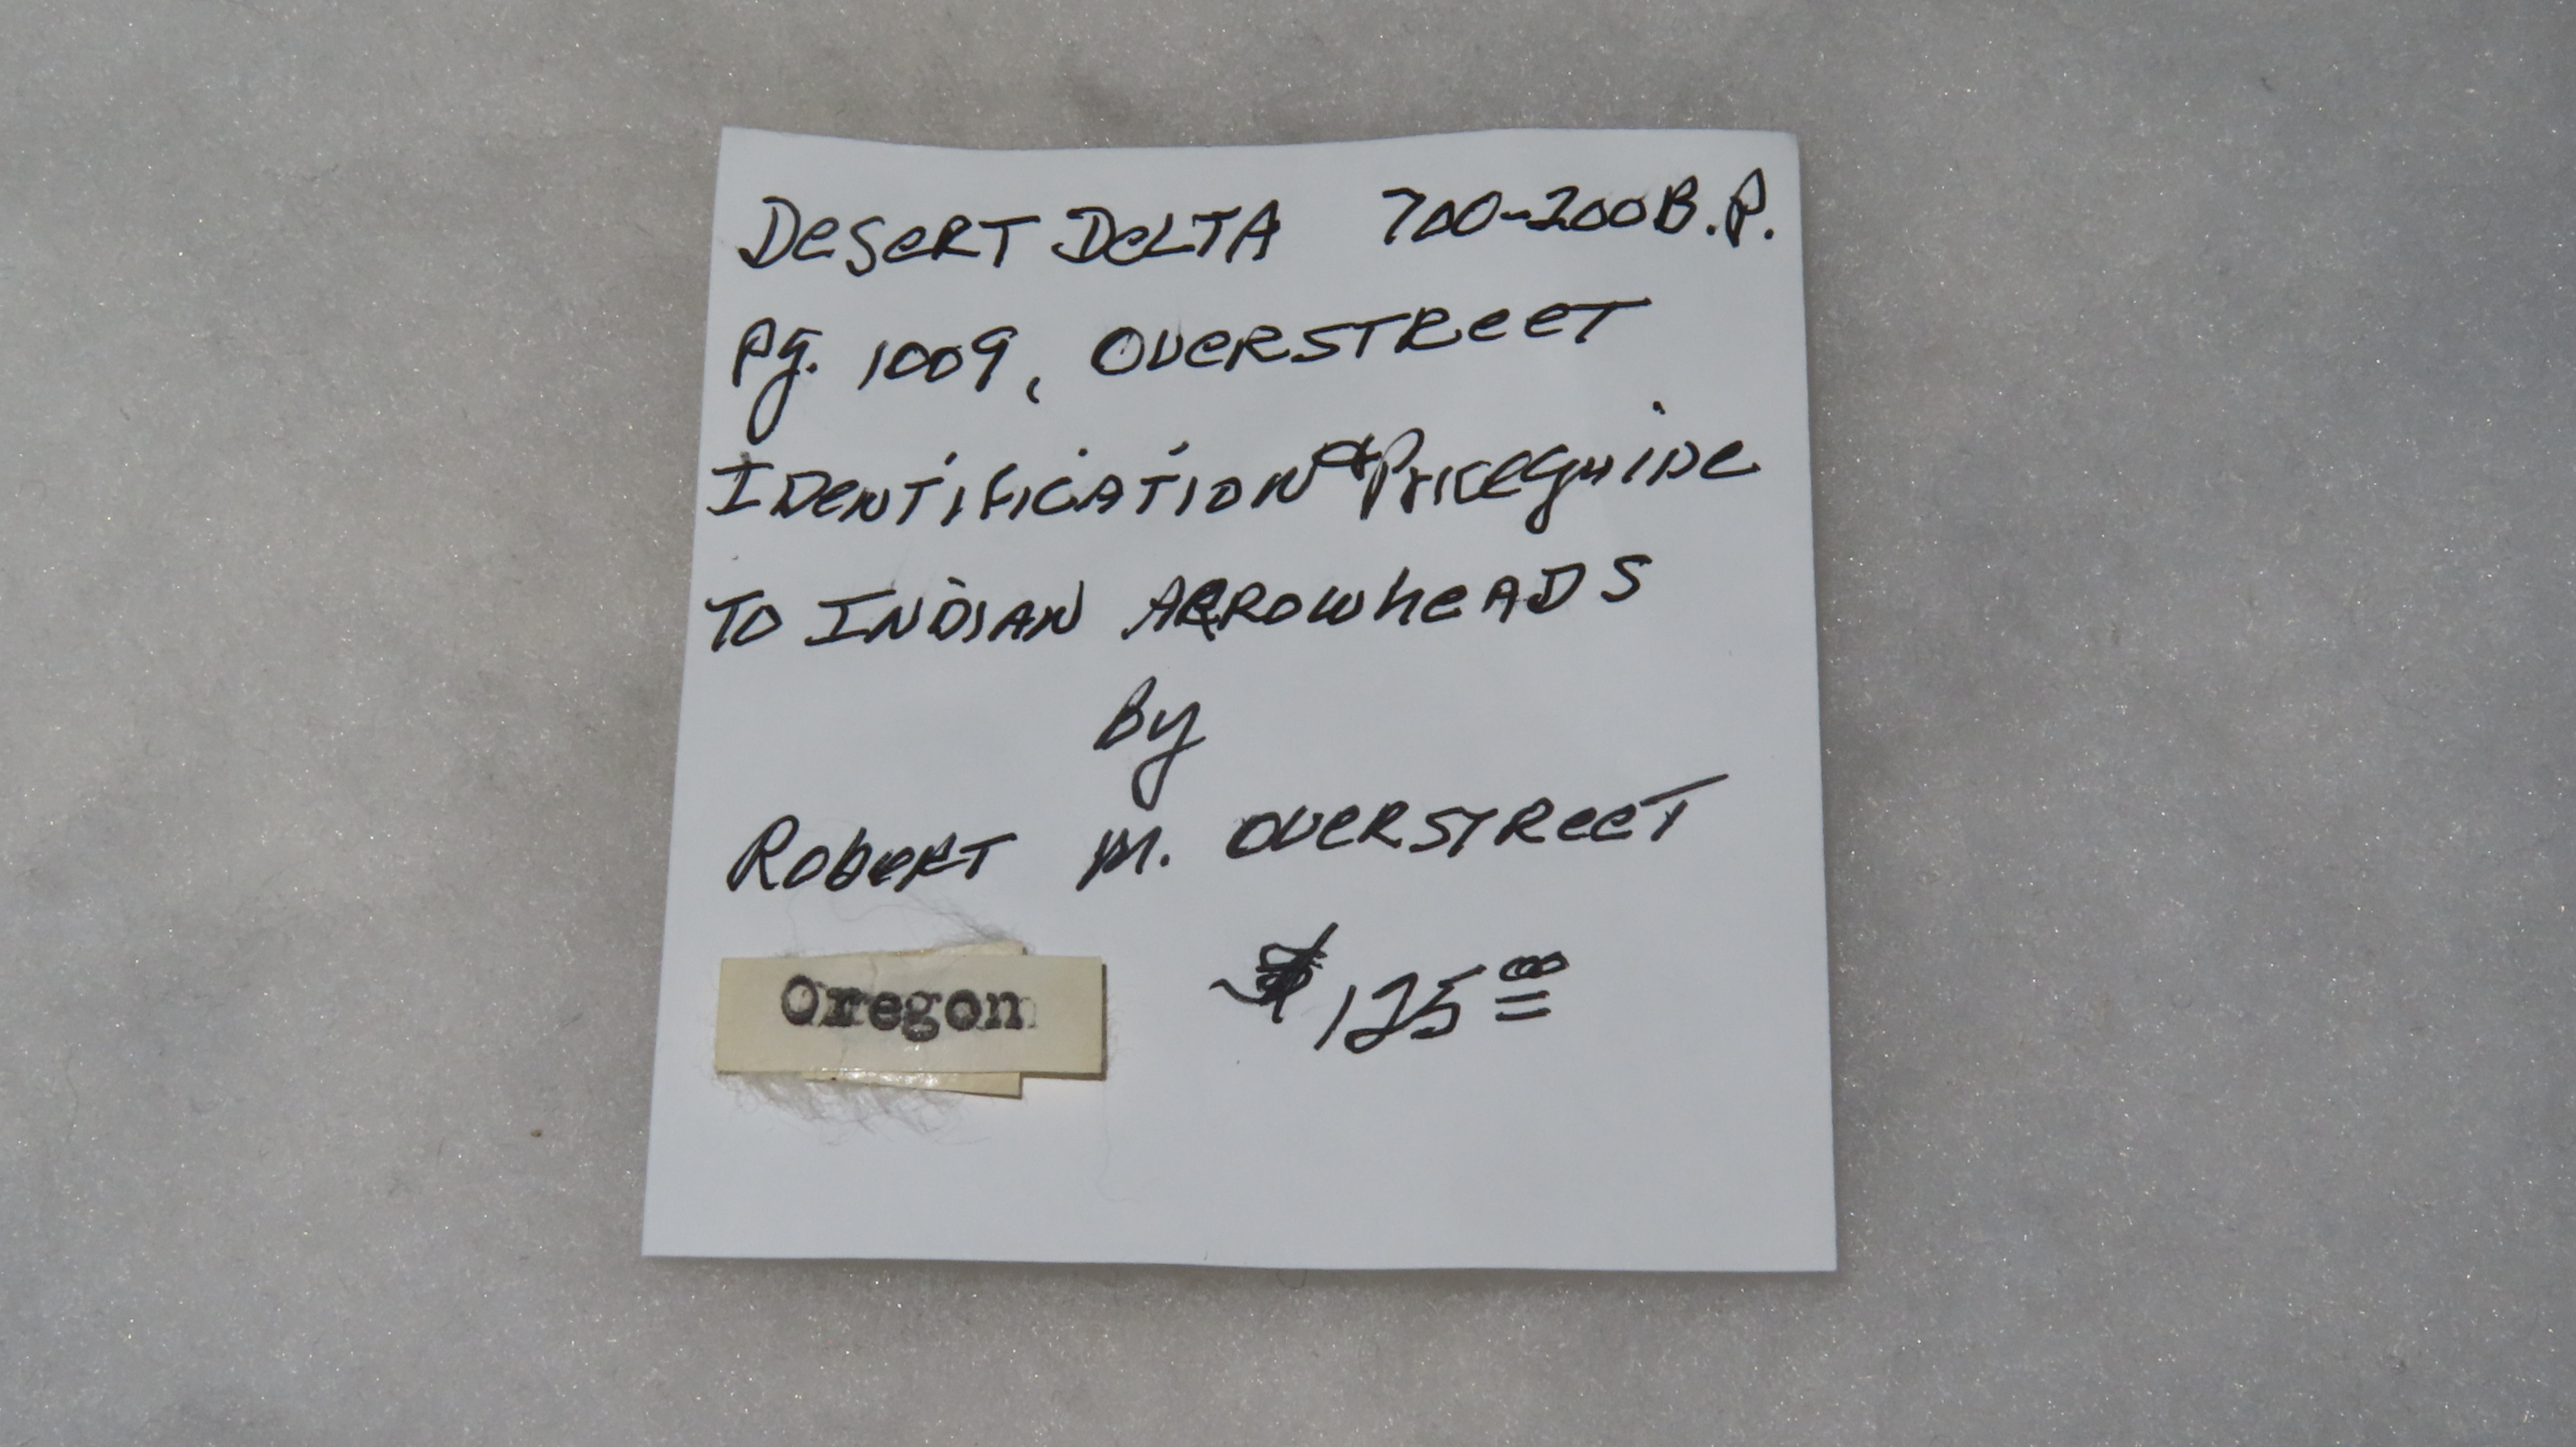 DeSeRT DeLTA 700-200 B.P.
Pg. 1009, OVeRSTReeT
IDeNTiFiCATiON & PriceguiDe
TO INDiAN ARROWheADS
By
RobeRT M. OVeRSTReeT
Oregon $125 00